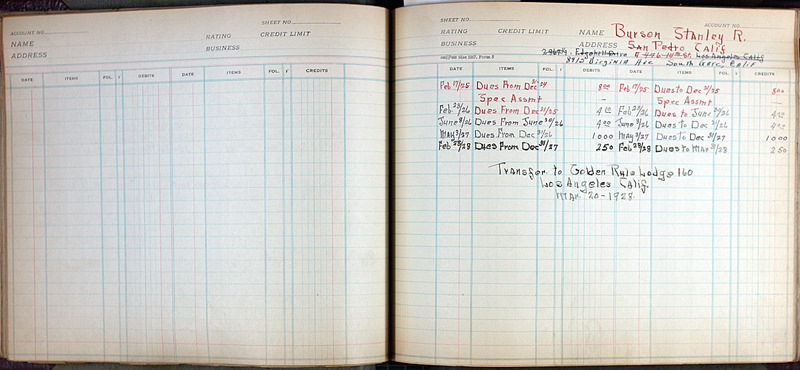 SHEET NO.
ACCOUNT NO.
NAME
RATING CREDIT LIMIT
ADDRESS
BUSINESS
DATE ITEMS FOL. DEBITS DATE ITEMS FOL. CREDITS
SHEET NO.
ACCOUNT NO.
RATING CREDIT LIMIT NAME Burson Stanley R.
BUSINESS ADDRESS San Pedro Calif
446-14th St. Los Angeles Calif
Virginia Ave South Gate, Calif
DATE ITEMS FOL. DEBITS DATE ITEMS FOL. CREDITS
Feb 17/25 Dues From Dec 31/24 800 Feb 17/25 Dues to Dec 31/25 800
Spec Assmt — Spec Assmt —
Feb 23/26 Dues From Dec 31/25 400 Feb 23/26 Dues to June 30/26 400
June 8/26 Dues From June 30/26 400 June 8/26 Dues to Dec 31/26 400
May 3/27 Dues From Dec 31/26 1000 May 3/27 Dues to Dec 31/27 1000
Feb 28/28 Dues From Dec 31/27 250 Feb 28/28 Dues to Mar 31/28 250
Transfer to Golden Rule Lodge 160
Los Angeles Calif.
Mar. 20-1928.